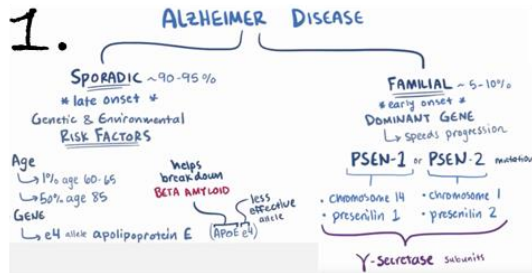 1.
ALZHEIMER DISEASE
SPORADIC ~90-95%
* late onset *
Genetic & Environmental
RISK FACTORS
Age
↳ 1% age 60-65
↳ 50% age 85
GENE
↳ e4 allele apolipoprotein E (APoE e4)
helps
breakdown
BETA AMYLOID
less
effective
allele
FAMILIAL ~ 5-10%
*early onset*
DOMINANT GENE
↳ speeds progression
PSEN-1 or PSEN-2 mutation
• chromosome 14
• presenilin 1
• chromosome 1
• presenilin 2
γ-secretase subunits